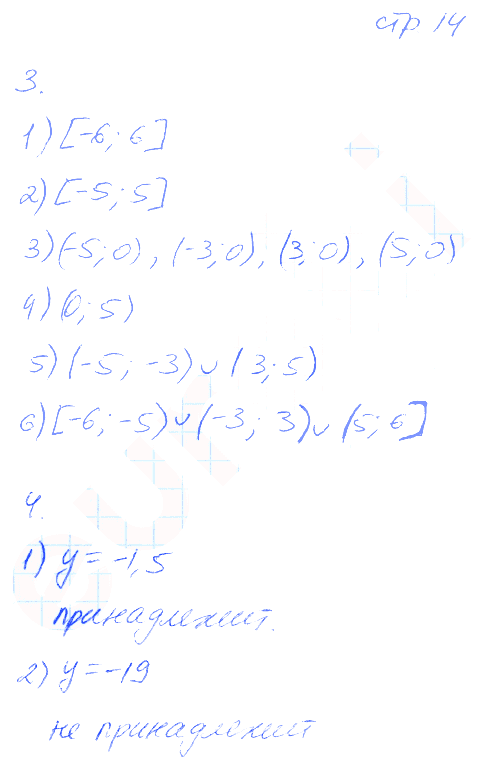 стр 14
3.
1) [-6; 6]
2) [-5; 5]
3) (-5; 0), (-3; 0), (3; 0), (5; 0)
4) (0; 5)
5) (-5; -3) ∪ (3; 5)
6) [-6; -5) ∪ (-3; 3) ∪ (5; 6]
4.
1) y = -1,5
принадлежит.
2) y = -19
не принадлежит